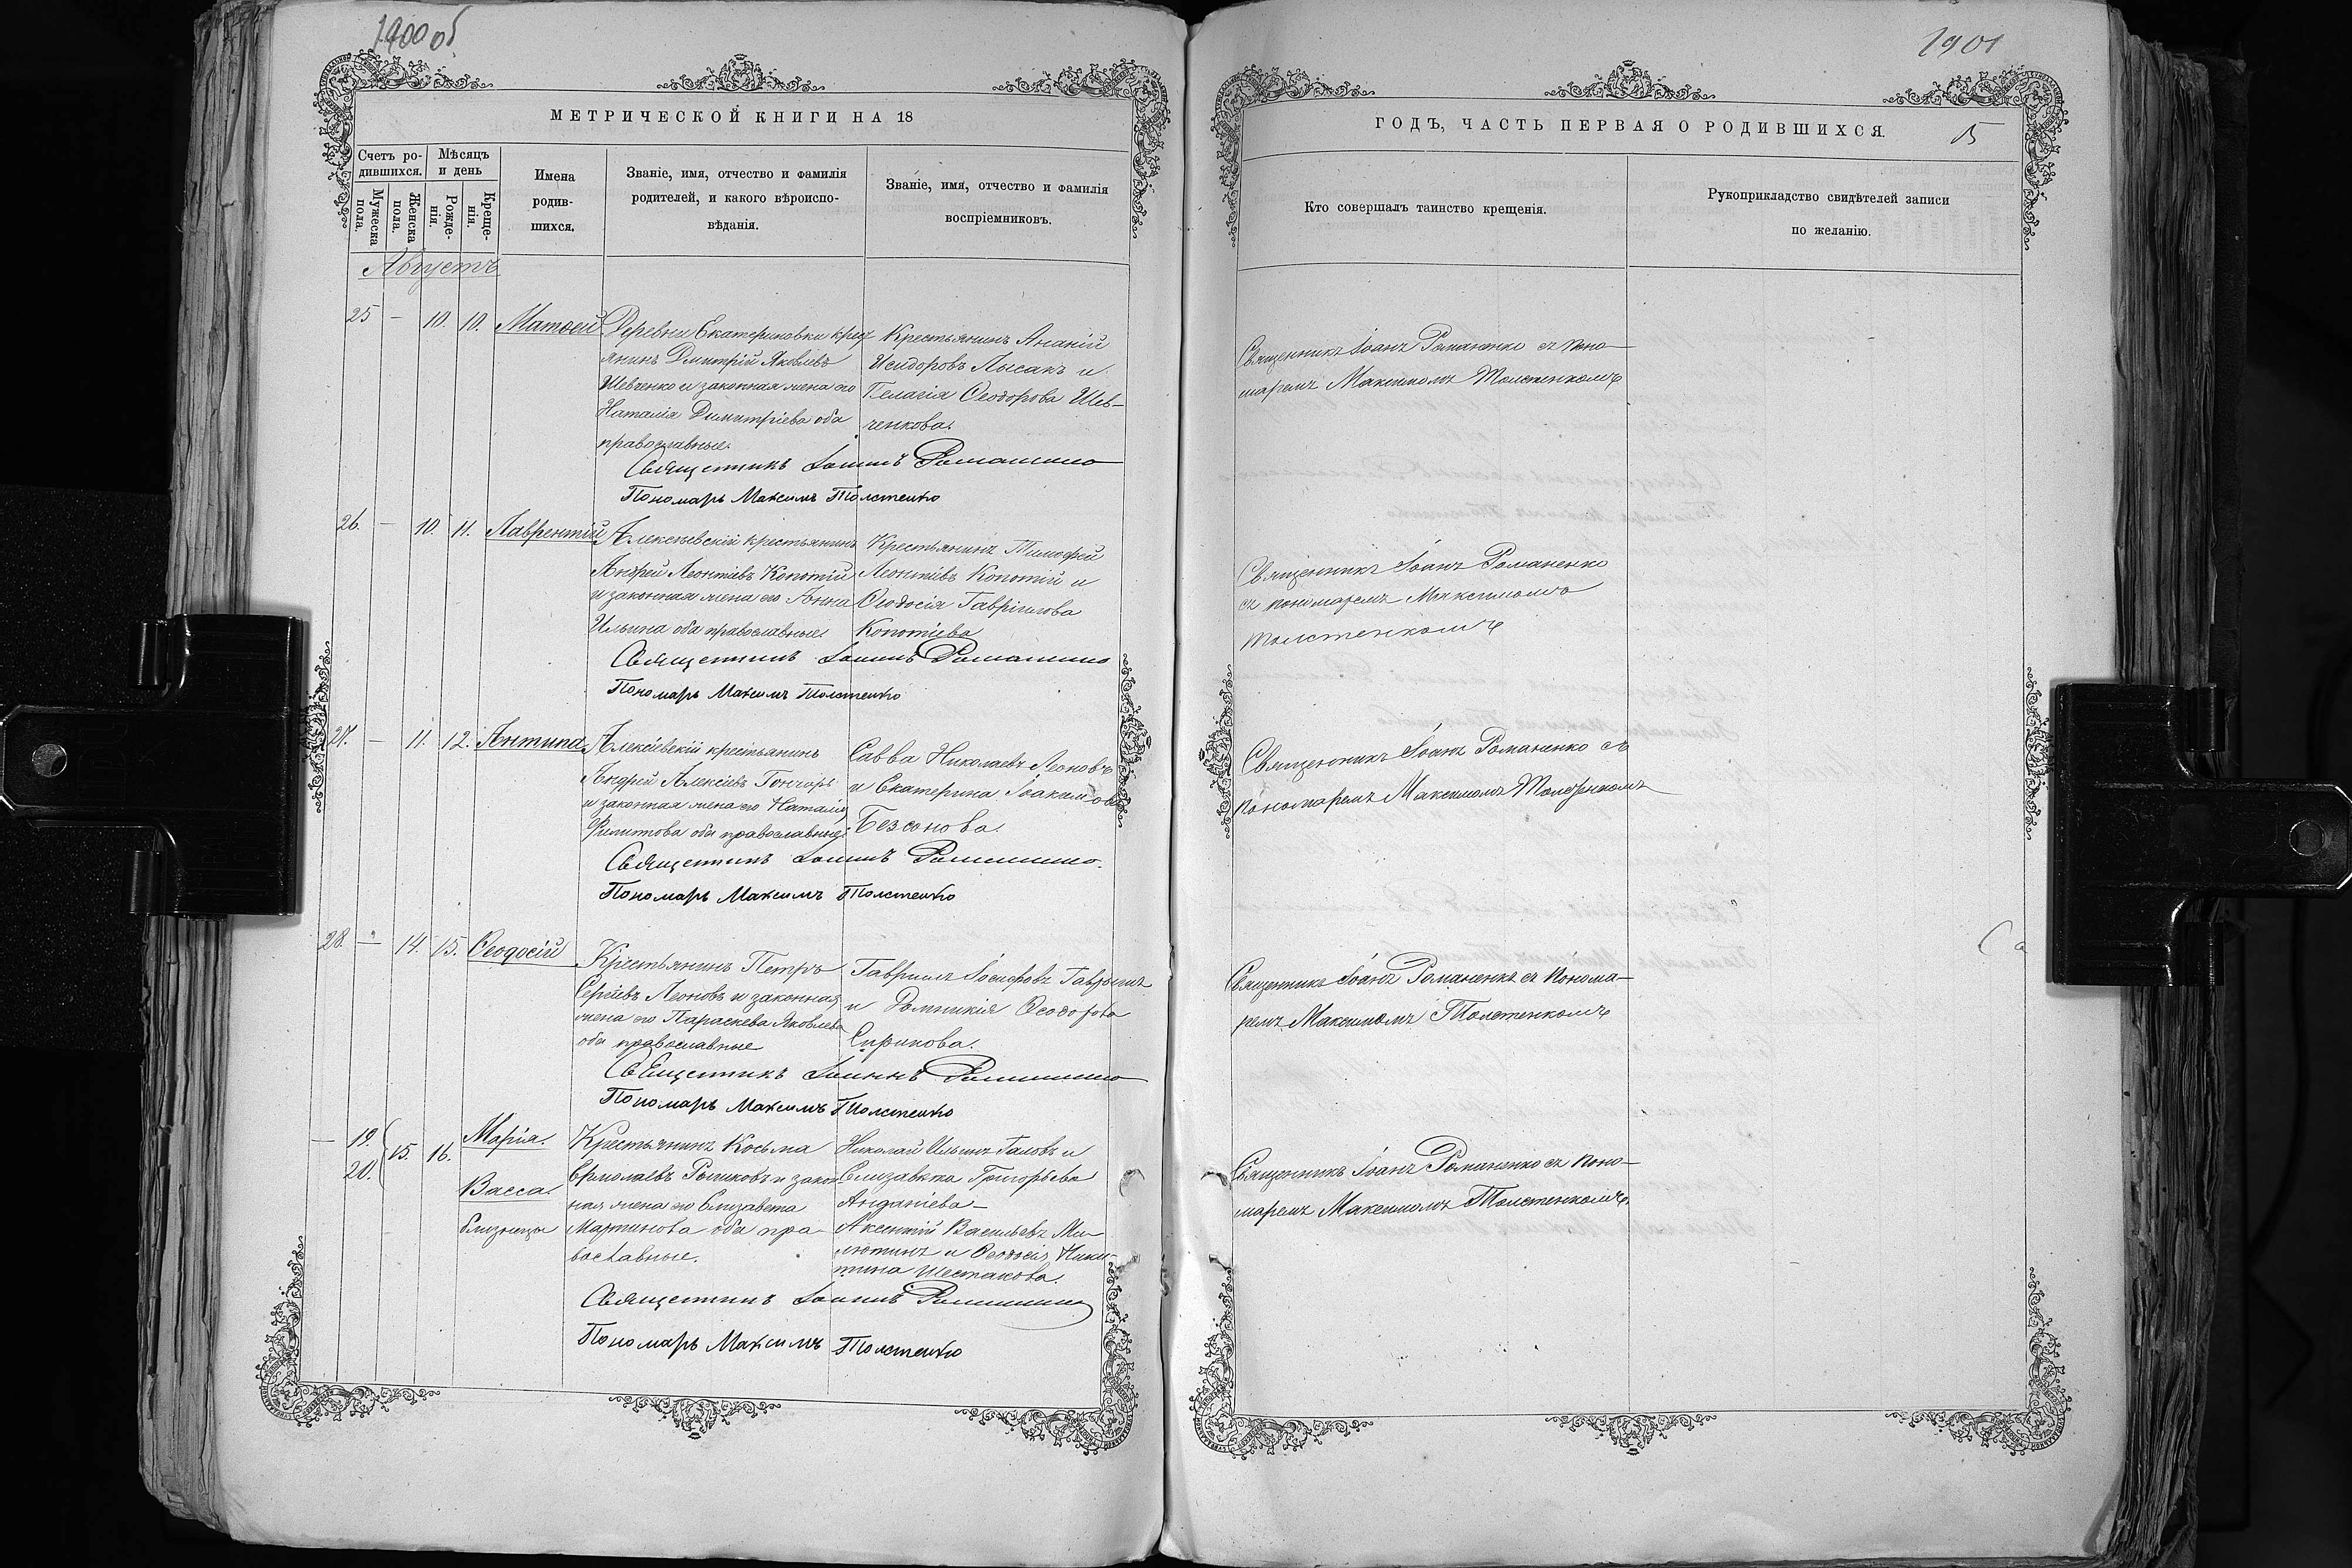 1900 об
МЕТРИЧЕСКОЙ КНИГИ НА 18
Счетъ ро-
дившихся.
Мѣсяцъ
и день
Мужеска
пола.
Женска
пола.
Рожде-
нія.
Креще-
нія.
Имена
родив-
шихся.
Званіе, имя, отчество и фамилія
родителей, и какого вѣроиспо-
вѣданія.
Званіе, имя, отчество и фамилія
воспріемниковъ.
Августъ
25 — 10. 10. Матѳей
Деревни Екатериновки крест
янинъ Дмитрій Яковлевъ
Шевченко и законная жена его
Наталія Димитріева оба
православные.
Крестьянинъ Ананій
Исидоровъ Лысакъ и
Пелагія Ѳеодорова Шев-
ченкова.
Священникъ Іоаннъ Романенко
Пономарь Максимъ Толстенко
26. — 10. 11. Лаврентій
Алексѣевскій крестьянинъ
Андрей Леонтіевъ Копотій
и законная жена его Анна
Ильина оба православные
Крестьянинъ Тимофей
Леонтіевъ Копотій и
Ѳеодосія Гавріилова
Копотіева
Священникъ Іоаннъ Романенко
Пономарь Максимъ Толстенко
27. — 11. 12. Антипа
Алексѣевскій крестьянинъ
Андрей Алексѣевъ Гончаръ
и законная жена его Наталія
Филипова оба православные.
Савва Николаевъ Леоновъ
и Екатерина Іоакимова
Безсонова.
Священникъ Іоаннъ Романенко.
Пономарь Максимъ Толстенко
28. — 14. 15. Ѳеодосій
Крестьянинъ Петръ
Сергѣевъ Леоновъ и законная
жена его Параскева Яковлева
оба православные
Гавріилъ Іосифовъ
и Домникія Ѳеодорова
Сприкова.
Священникъ Іоаннъ Романенко
Пономарь Максимъ Толстенко
— 19. 15. 16. Марія.
20.
Васса.
близнецы
Крестьянинъ Косьма
Ермолаевъ Рыжковъ и закон
ная жена его Елизавета
Мартинова оба пра-
вославные.
Николай Ильинъ и
Елизавета Григорьева
Анданіева—
Аксентій Васильевъ Ми-
лютинъ и Ѳеодосія Ники-
тина Шестакова.
Священникъ Іоаннъ Романенко
Пономарь Максимъ Толстенко
1901
ГОДЪ, ЧАСТЬ ПЕРВАЯ О РОДИВШИХСЯ.
Кто совершалъ таинство крещенія.
Рукоприкладство свидѣтелей записи
по желанію.
Священникъ Іоанъ Романенко съ поно-
маремъ Максимомъ Толстенкомъ
Священникъ Іоанъ Романенко
съ пономаремъ Максимомъ
Толстенкомъ
Священникъ Іоанъ Романенко съ
пономаремъ Максимомъ Толстенкомъ
Священникъ Іоанъ Романенко съ понома-
ремъ Максимомъ Толстенкомъ
Священникъ Іоанъ Романенко съ поно-
маремъ Максимомъ Толстенкомъ.